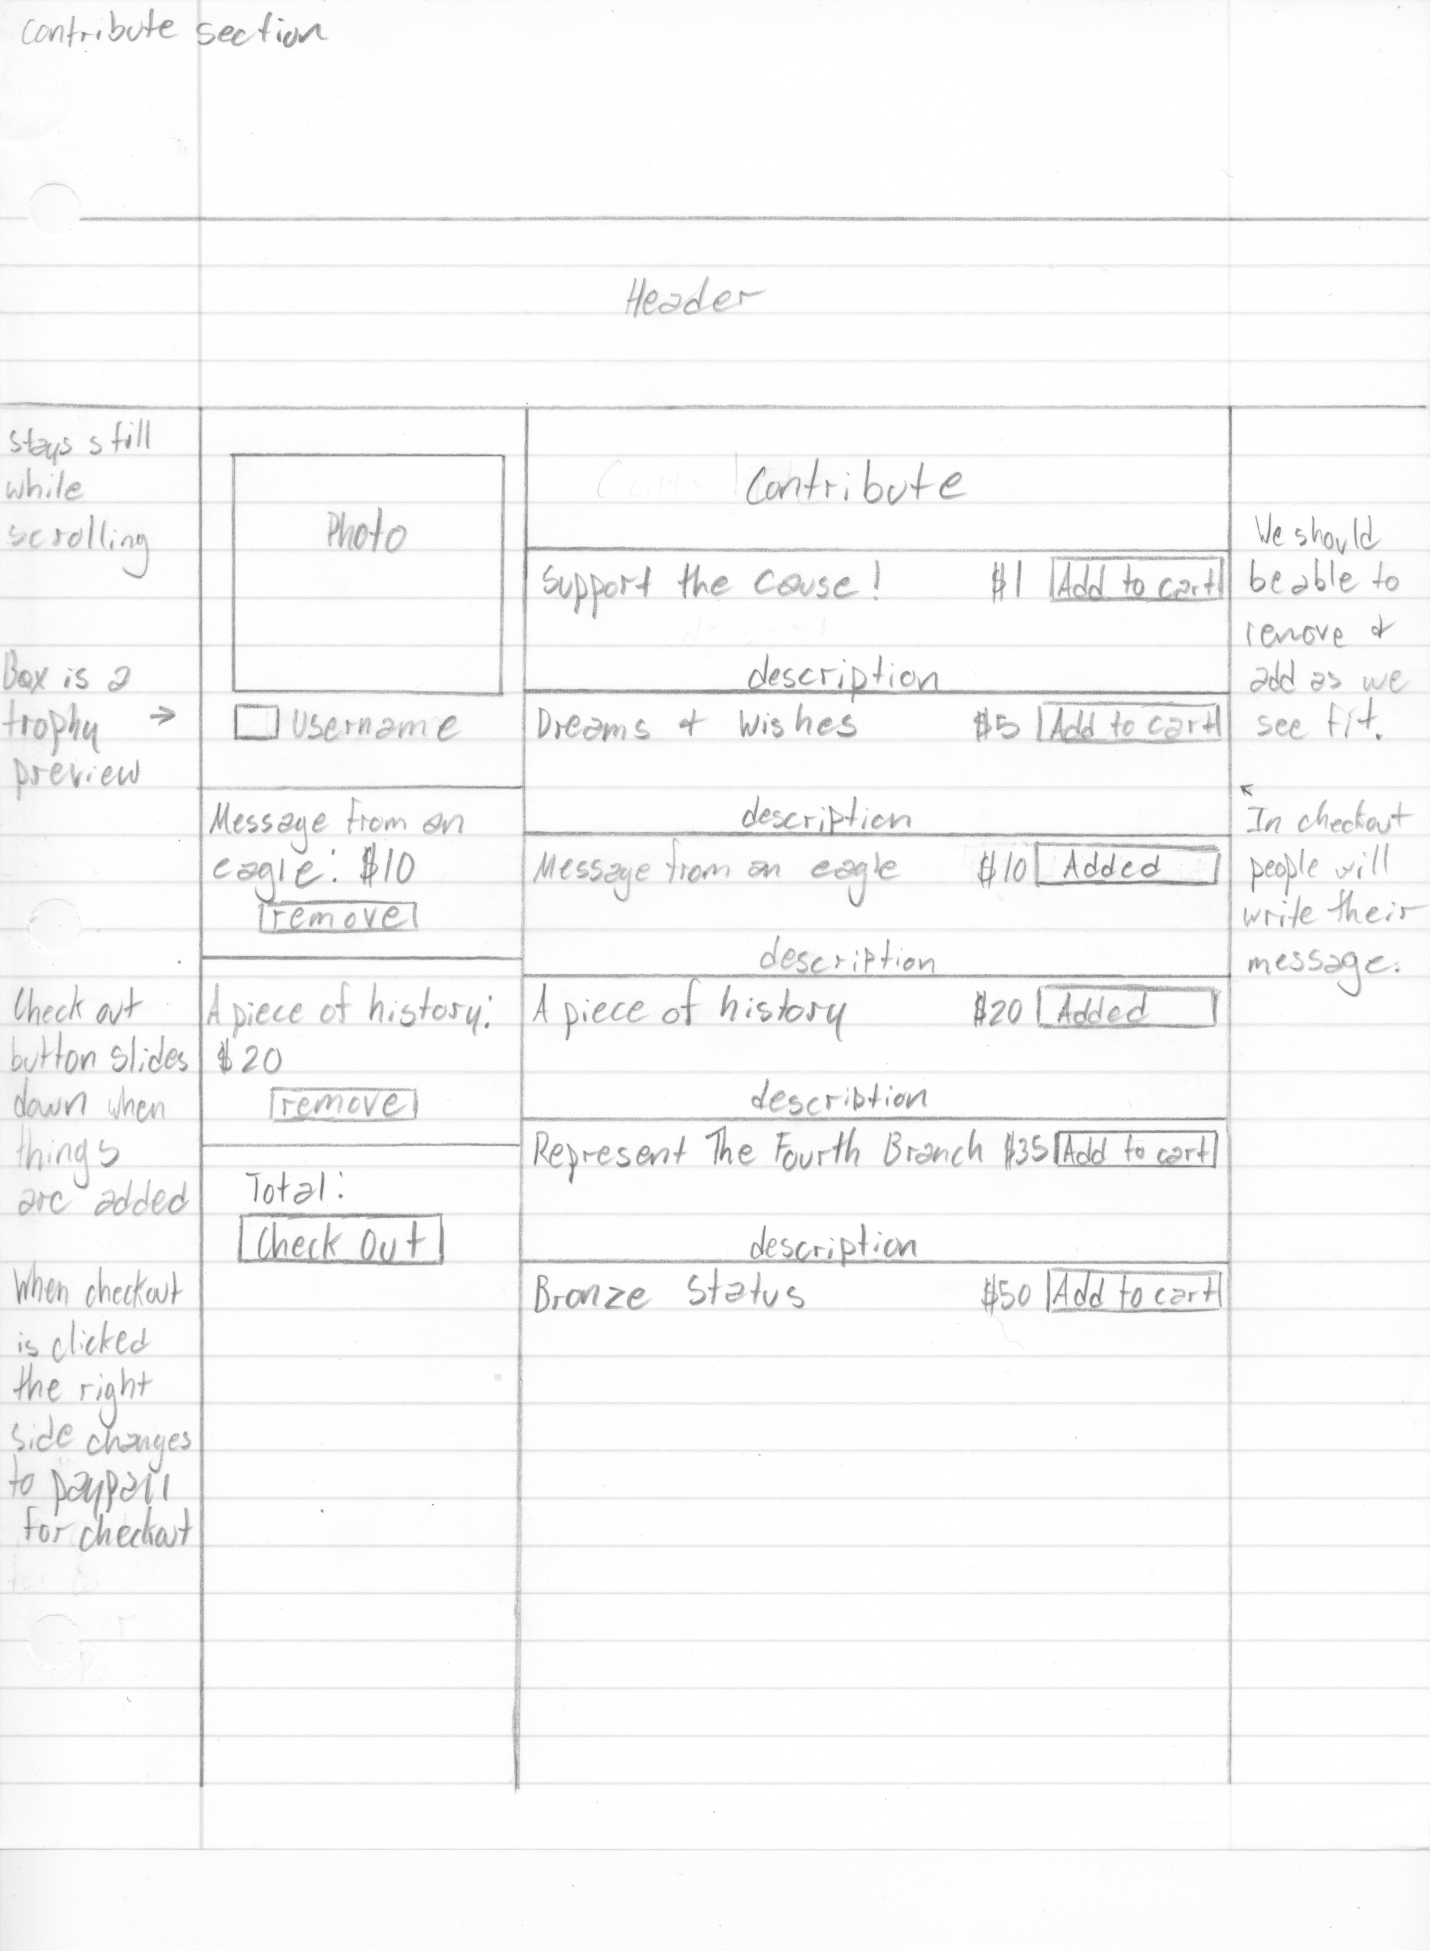 Contribute section
Header
stays still
while
scrolling
Box is a
trophy →
preview
Check out
button slides
down when
things
are added
When checkout
is clicked
the right
side changes
to paypall
for checkout
Photo
Username
Message from an
eagle: $10
remove
A piece of history:
$20
remove
Total:
Check Out
Contribute
Support the cause! $1 Add to cart
description
Dreams & Wishes $5 Add to cart
description
Message from an eagle $10 Added
description
A piece of history $20 Added
description
Represent The Fourth Branch $35 Add to cart
description
Bronze Status $50 Add to cart
We should
be able to
remove &
add as we
see fit.
In checkout
people will
write their
message.